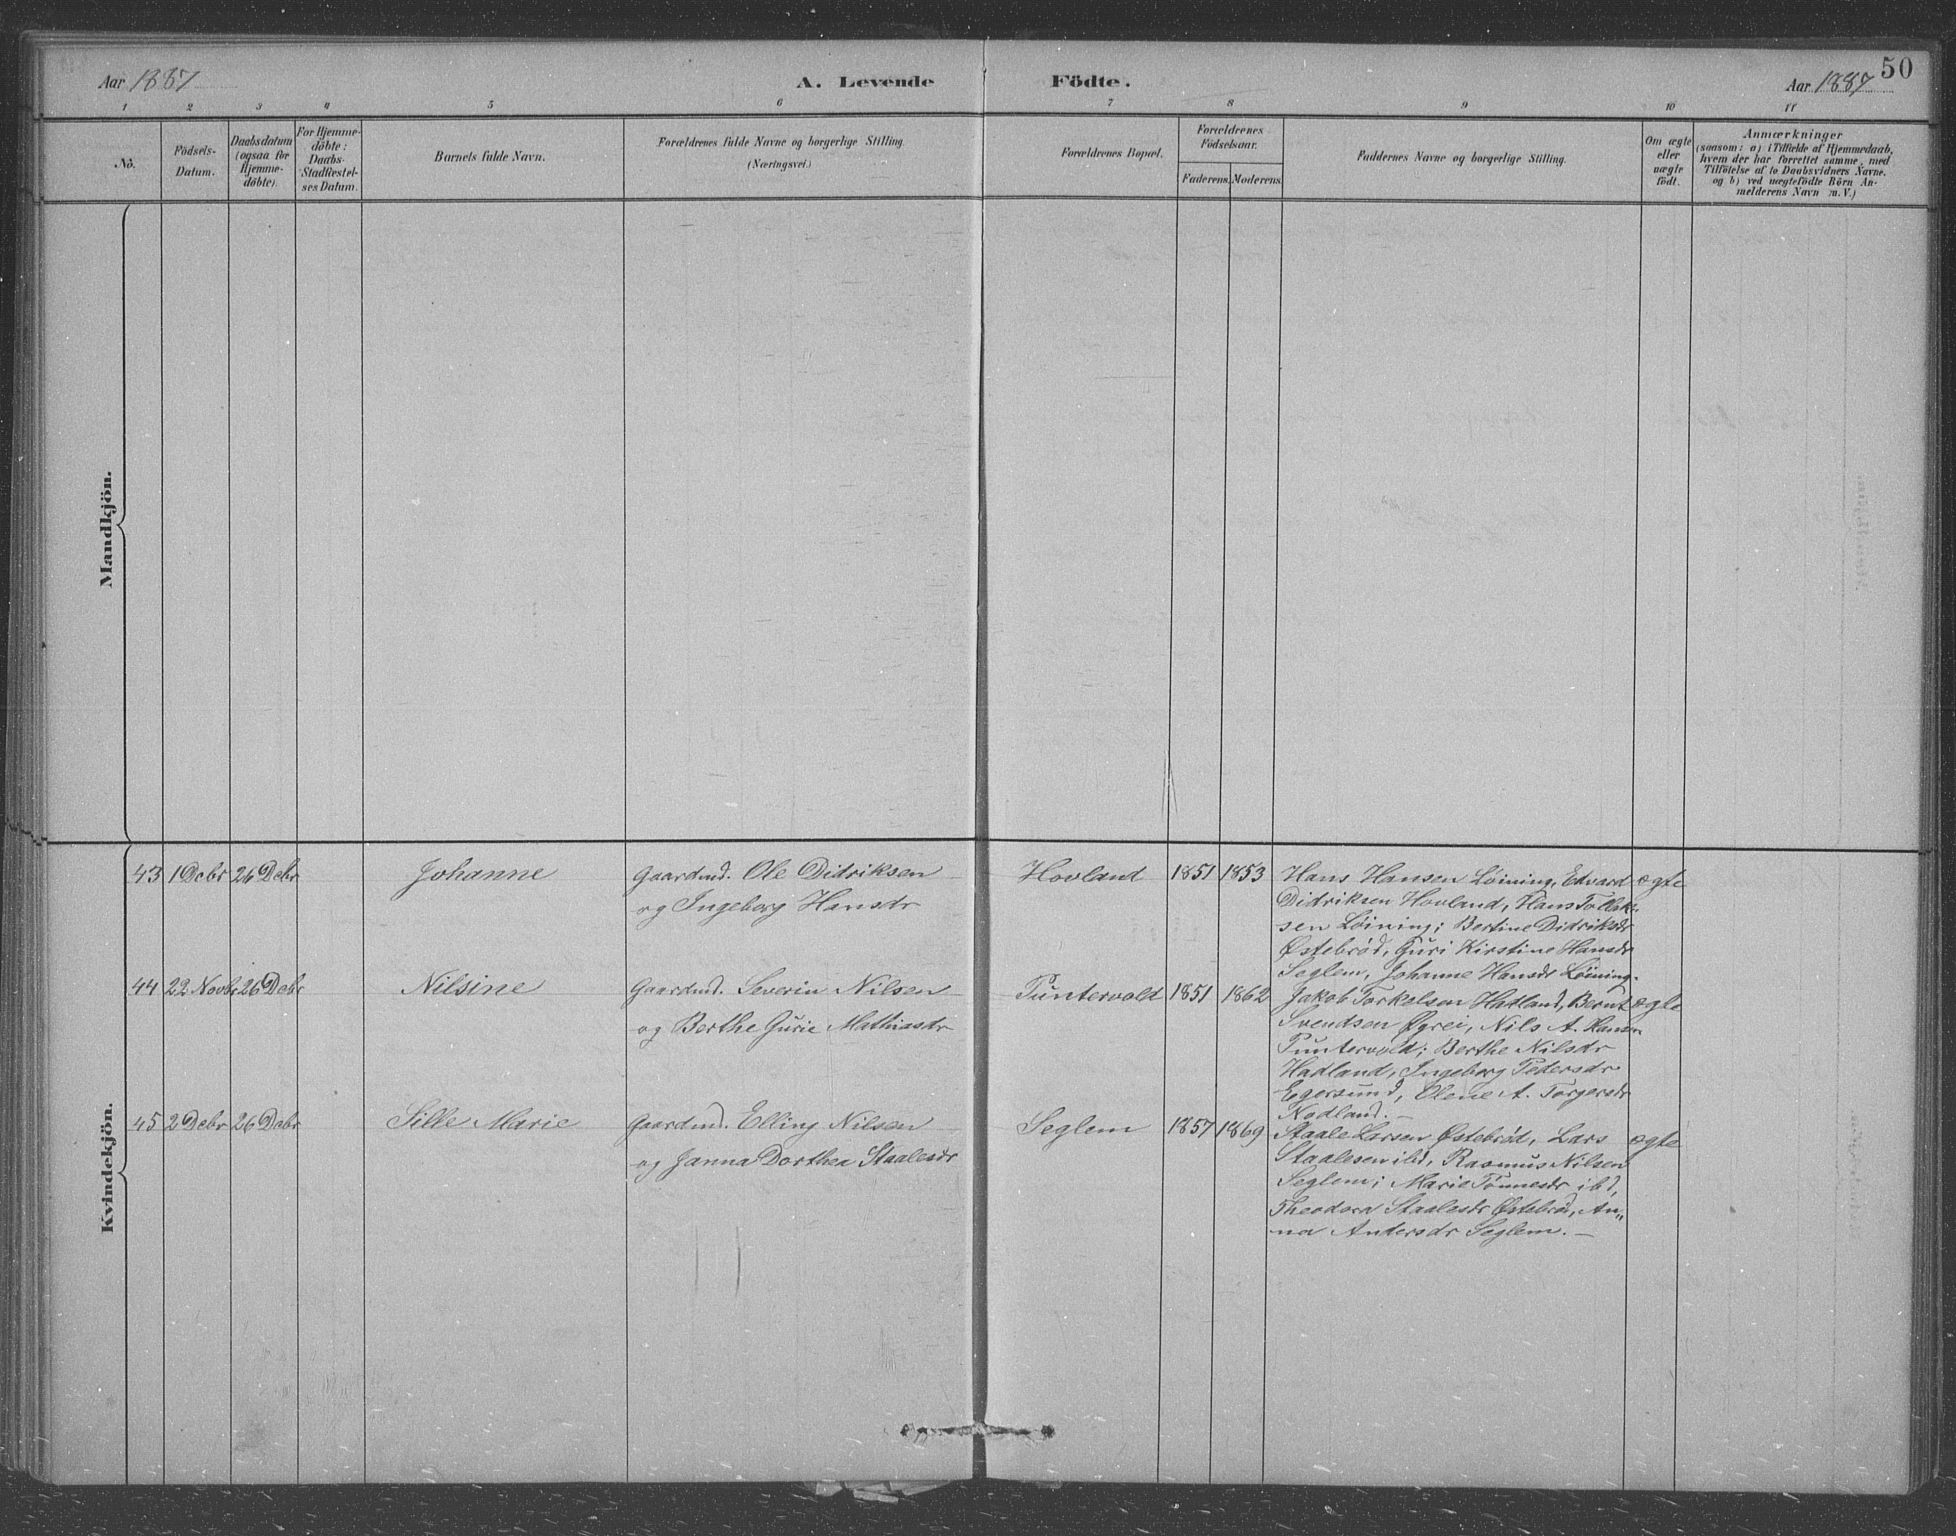 50
Aar 1887 A. Levende Födte. Aar 1887
1 2 3 4 5 6 7 8 9 10 11
No.
Födsels-
Datum.
Daabsdatum
(ogsaa for
Hjemme-
döbte).
For Hjemme-
döbte:
Daabs-
Stadfæstel-
ses Datum.
Barnets fulde Navn.
Forældrenes fulde Navne og borgerlige Stilling
(Næringsvei)
Forældrenes Bopæl.
Forældrenes
Födselsaar.
Faderens. Moderens.
Faddernes Navne og borgerlige Stilling.
Om ægte
eller
uægte
födt.
Anmærkninger
(saasom: a) i Tilfælde af Hjemmedaab,
hvem der har forrettet samme, med
Tilföielse af to Daabsvidners Navne,
og b) ved uægtefödte Börn An-
melderens Navn m. V.)
Mandkjön.
Kvindekjön.
43 1 Debr 26 Debr Johanne
Gaardmd. Ole Didriksen
og Ingeborg Hansdr
Hovland 1851 1853
Hans Hansen Løining, Edvard
Didriksen Hovland, Hans Tollak-
sen Løining; Bertine Didriksdr
Østebrød, Guri Kirstine Hansdr
Seglem, Johanne Hansdr Løining.
ægte
44 22 Novbr 26 Debr Nilsine
Gaardmd. Severin Nilsen
og Berthe Gurie Mathiasdr
Puntervold 1851 1862
Jakob Torkelsen Hadland, Bernt
Svendsen Øgrei, Nils A. Hansen
Puntervold; Berthe Nilsdr
Hadland, Ingeborg Pedersdr
Egersund, Olene A. Torgersdr
Nodland.
ægte
45 2 Debr 26 Debr Sille Marie
Gaardmd. Elling Nilsen
og Janna Dorthea Staalesdr
Seglem 1857 1869
Staale Larsen Østebrød, Lars
Staalesen ibd, Rasmus Nilsen
Seglem; Marie Tønnesdr ibd,
Theodora Staalesdr Østebrød, An„
na Andersdr Seglem.
ægte